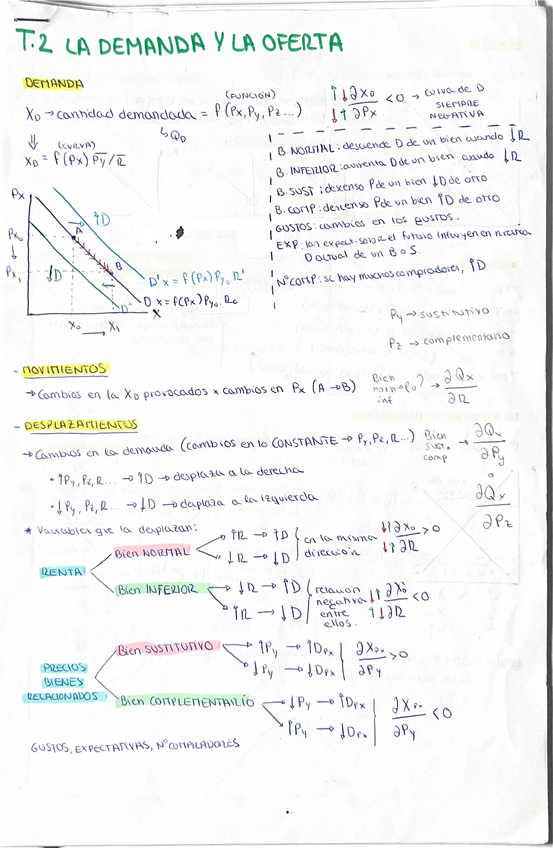 T.2 LA DEMANDA Y LA OFERTA
DEMANDA
(FUNCIÓN)
X_D → cantidad demandada = f (Px, Py, Pz ...)
↳ Q_D
↑↓ ∂X_D / ↓↑ ∂Px < 0 → curva de D SIEMPRE NEGATIVA
⇓ (CURVA)
X_D = f (Px) Py/R
B. NORMAL: desciende D de un bien cuando ↓R
B. INFERIOR: aumenta D de un bien cuando ↓R
B. SUST: descenso P de un bien ↓D de otro
B. COMP: descenso P de un bien ↑D de otro
GUSTOS: cambios en los gustos.
EXP: las expect. sobre el futuro influyen en nuestra
D actual de un B o S.
NºCOMP: si hay muchos compradores, ↑D
Px
Px₀
↓
Px₁
A
B
↑D
↓D
D' x = f(Px) Py₀ R'
D x = f(Px) Py₀. R₀
D''
X
X₀ → X₁
Py → sustitutivo
Pz → complementario
- MOVIMIENTOS
→ Cambios en la X_D provocados x cambios en Px (A → B)
Bien normal o inf ? → ∂Qx / ∂R
- DESPLAZAMIENTOS
→ Cambios en la demanda (cambios en lo CONSTANTE → Py, Pz, R...)
Bien sust. o comp → ∂Qx / ∂Py
o
∂Qx / ∂Pz
• ↑Py, Pz, R... → ↑D → desplaza a la derecha
• ↓Py, Pz, R... → ↓D → desplaza a la izquierda
* Variables que la desplazan:
RENTA
Bien NORMAL
↑R → ↑D
↓R → ↓D
en la misma dirección
↓↑ ∂X_D / ↓↑ ∂R > 0
Bien INFERIOR
↓R → ↑D
↑R → ↓D
relación negativa entre ellos.
↓↑ ∂X_D / ↑↓ ∂R < 0
PRECIOS BIENES RELACIONADOS
Bien SUSTITUTIVO
↑Py → ↑D_Px
↓Py → ↓D_Px
∂X_Px / ∂Py > 0
Bien COMPLEMENTARIO
↓Py → ↑D_Px
↑Py → ↓D_Px
∂X_Px / ∂Py < 0
GUSTOS, EXPECTATIVAS, Nº COMPRADORES